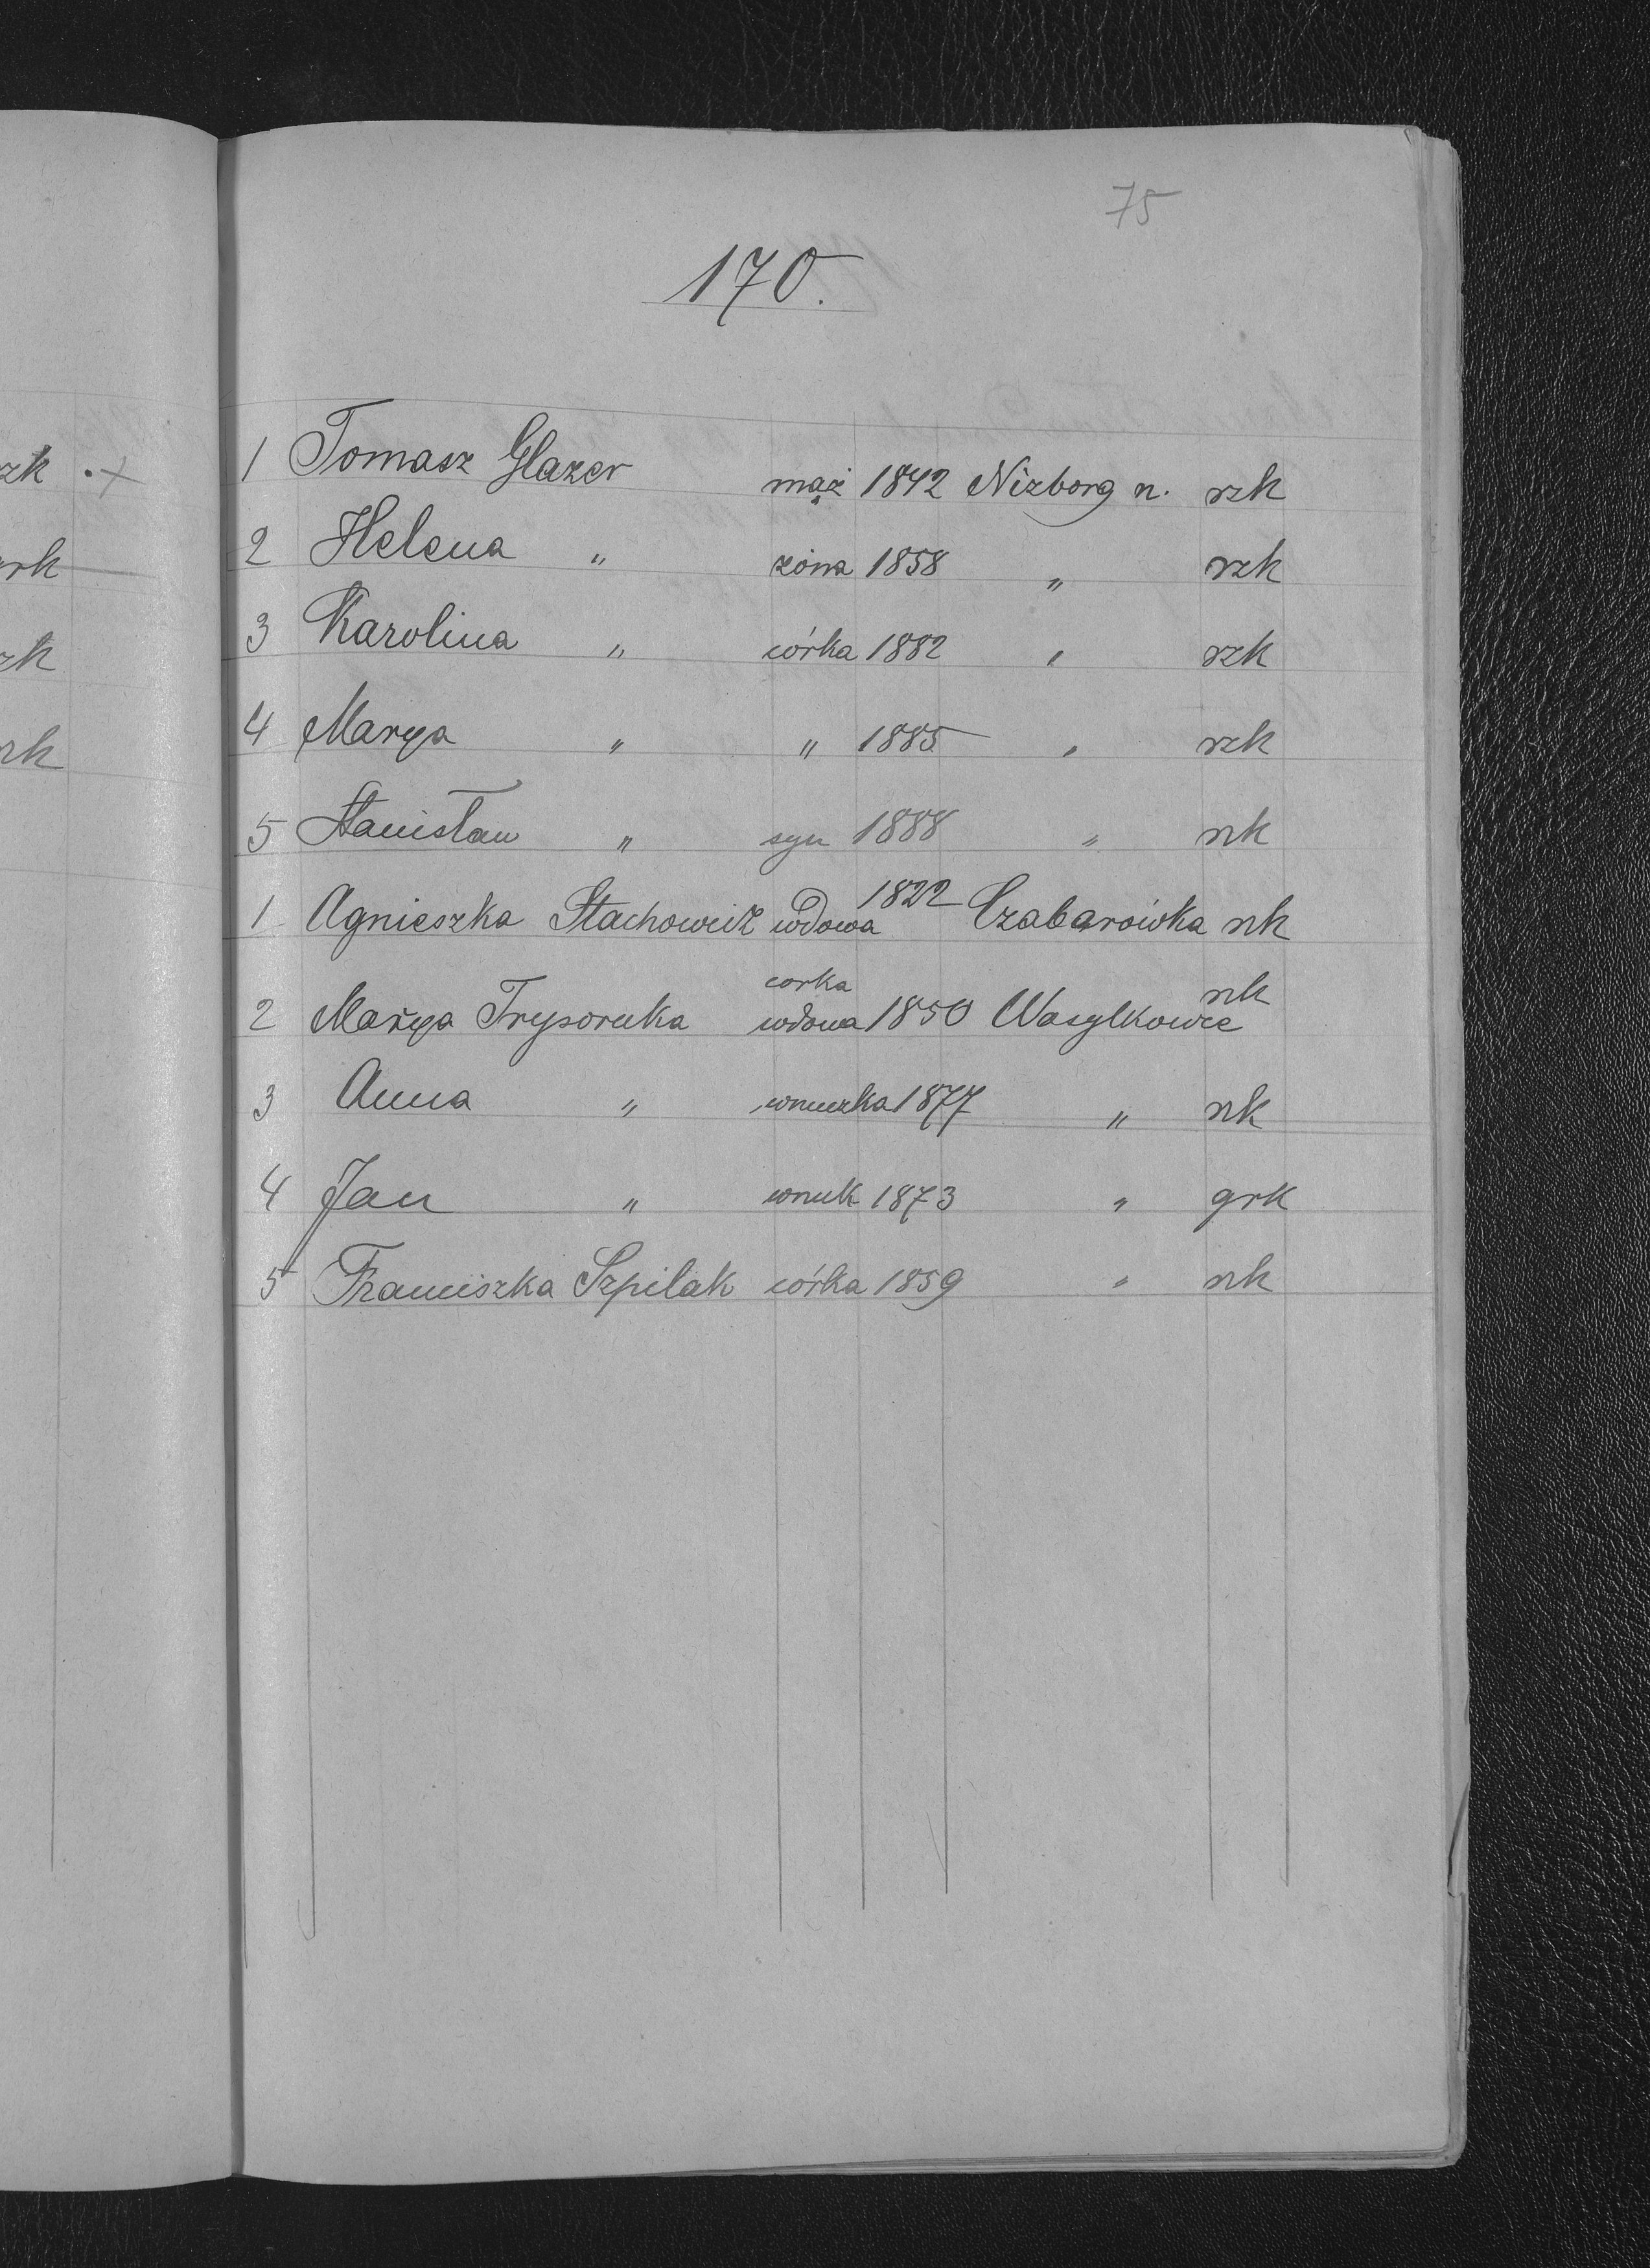 75
170.
1 Tomasz Glazer mąż 1842 Nizborg n. rzk
2 Helena " żona 1858 " rzk
3 Karolina " córka 1882 " rzk
4 Marya " " 1885 " rzk
5 Stanisław " syn 1888 " rzk
1 Agnieszka Stachowicz wdowa 1822 Czabarówka rzk
corka
2 Marya wdowa 1850 Wasylkowce rzk
3 Anna " wnuczka 1877 " rzk
4 Jan " wnuk 1873 " grk
5 Franciszka Szpilak córka 1859 " rzk
zk . +
rk
zk
rzk